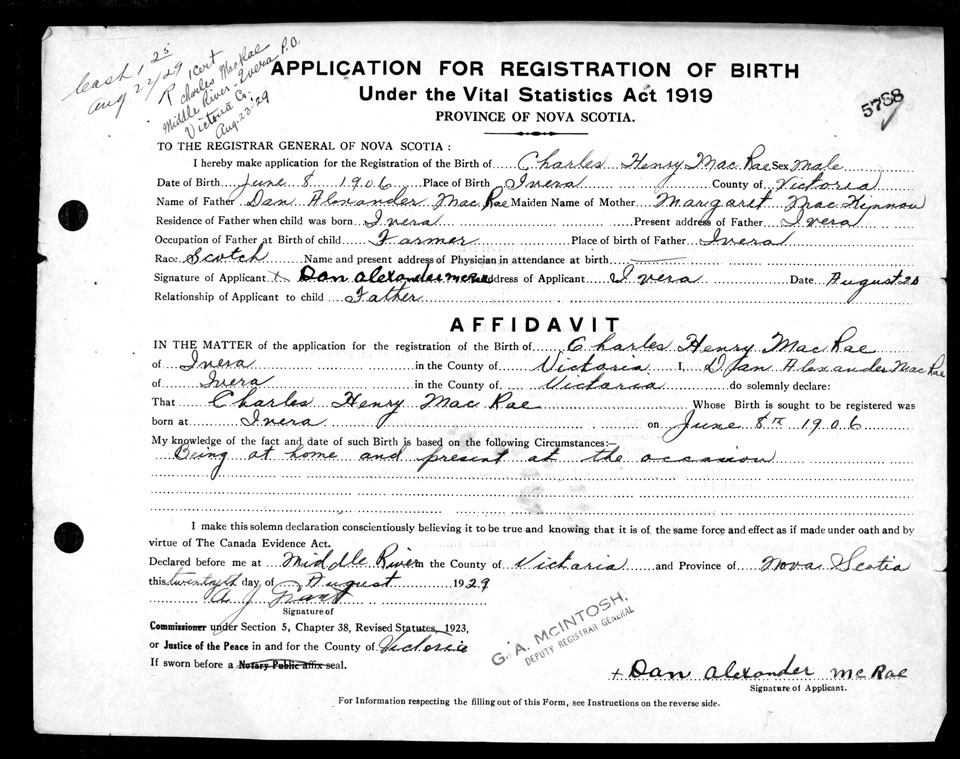 Cash 1.25
Aug 22/29 1 Cert
R Charles MacRae
Middle River - Ivera P.O.
Victoria Co.
Aug-23-29
APPLICATION FOR REGISTRATION OF BIRTH
Under the Vital Statistics Act 1919
PROVINCE OF NOVA SCOTIA.
5788
TO THE REGISTRAR GENERAL OF NOVA SCOTIA:
I hereby make application for the Registration of the Birth of Charles Henry Mac Rae Sex Male
Date of Birth June 8 1906 Place of Birth Ivera County of Victoria
Name of Father Dan Alexander Mac Rae Maiden Name of Mother Margaret MacKinnon
Residence of Father when child was born Ivera Present address of Father Ivera
Occupation of Father at Birth of child Farmer Place of birth of Father Ivera
Race Scotch Name and present address of Physician in attendance at birth
Signature of Applicant x Dan Alexander McRae address of Applicant Ivera Date August 20
Relationship of Applicant to child Father
AFFIDAVIT
IN THE MATTER of the application for the registration of the Birth of Charles Henry Mac Rae
of Ivera in the County of Victoria I, Dan Alexander Mac Rae
of Ivera in the County of Victoria do solemnly declare:
That Charles Henry Mac Rae Whose Birth is sought to be registered was
born at Ivera on June 8th 1906
My knowledge of the fact and date of such Birth is based on the following Circumstances:—
Being at home and present at the occasion
I make this solemn declaration conscientiously believing it to be true and knowing that it is of the same force and effect as if made under oath and by
virtue of The Canada Evidence Act.
Declared before me at Middle River in the County of Victoria and Province of Nova Scotia
this twentyeth day of August 1929
A J Grant
Signature of
Commissioner under Section 5, Chapter 38, Revised Statutes, 1923,
or Justice of the Peace in and for the County of Victoria
If sworn before a Notary Public affix seal.
G. A. McINTOSH,
DEPUTY REGISTRAR GENERAL
+ Dan Alexander McRae
Signature of Applicant.
For Information respecting the filling out of this Form, see Instructions on the reverse side.